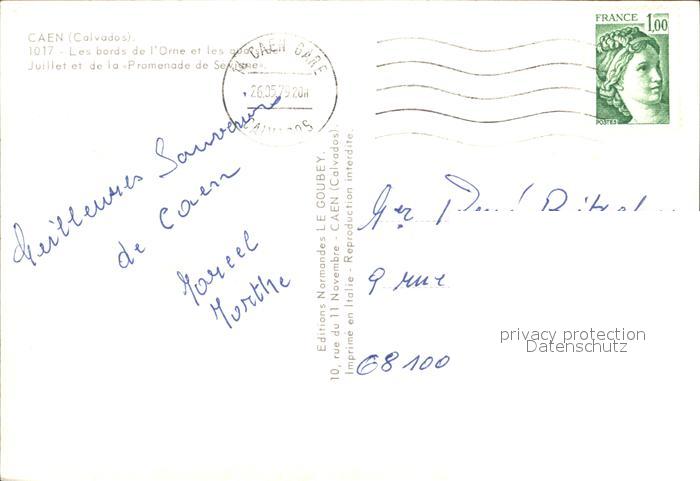 CAEN (Calvados).
1017 - Les bords de l'Orne et les quais
Juillet et de la «Promenade de Sévigné».
CAEN GARE
26.05.79 20H
CALVADOS
FRANCE 1,00
POSTES
Meilleures Souvenirs
de Caen
Marcel
Marthe
Editions Normandes LE GOUBEY.
10, rue du 11 Novembre - CAEN (Calvados).
Imprimé en Italie - Reproduction interdite.
René
9 rue
68100
privacy protection
Datenschutz